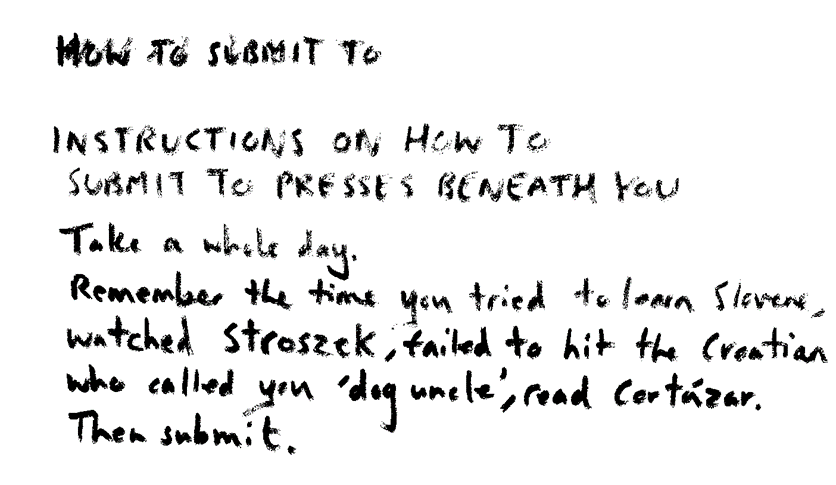 HOW TO SUBMIT TO
INSTRUCTIONS ON HOW TO
SUBMIT TO PRESSES BENEATH YOU
Take a whole day.
Remember the time you tried to learn Slovene,
watched Stroszek, failed to hit the Croatian
who called you 'dog uncle', read Cortázar.
Then submit.